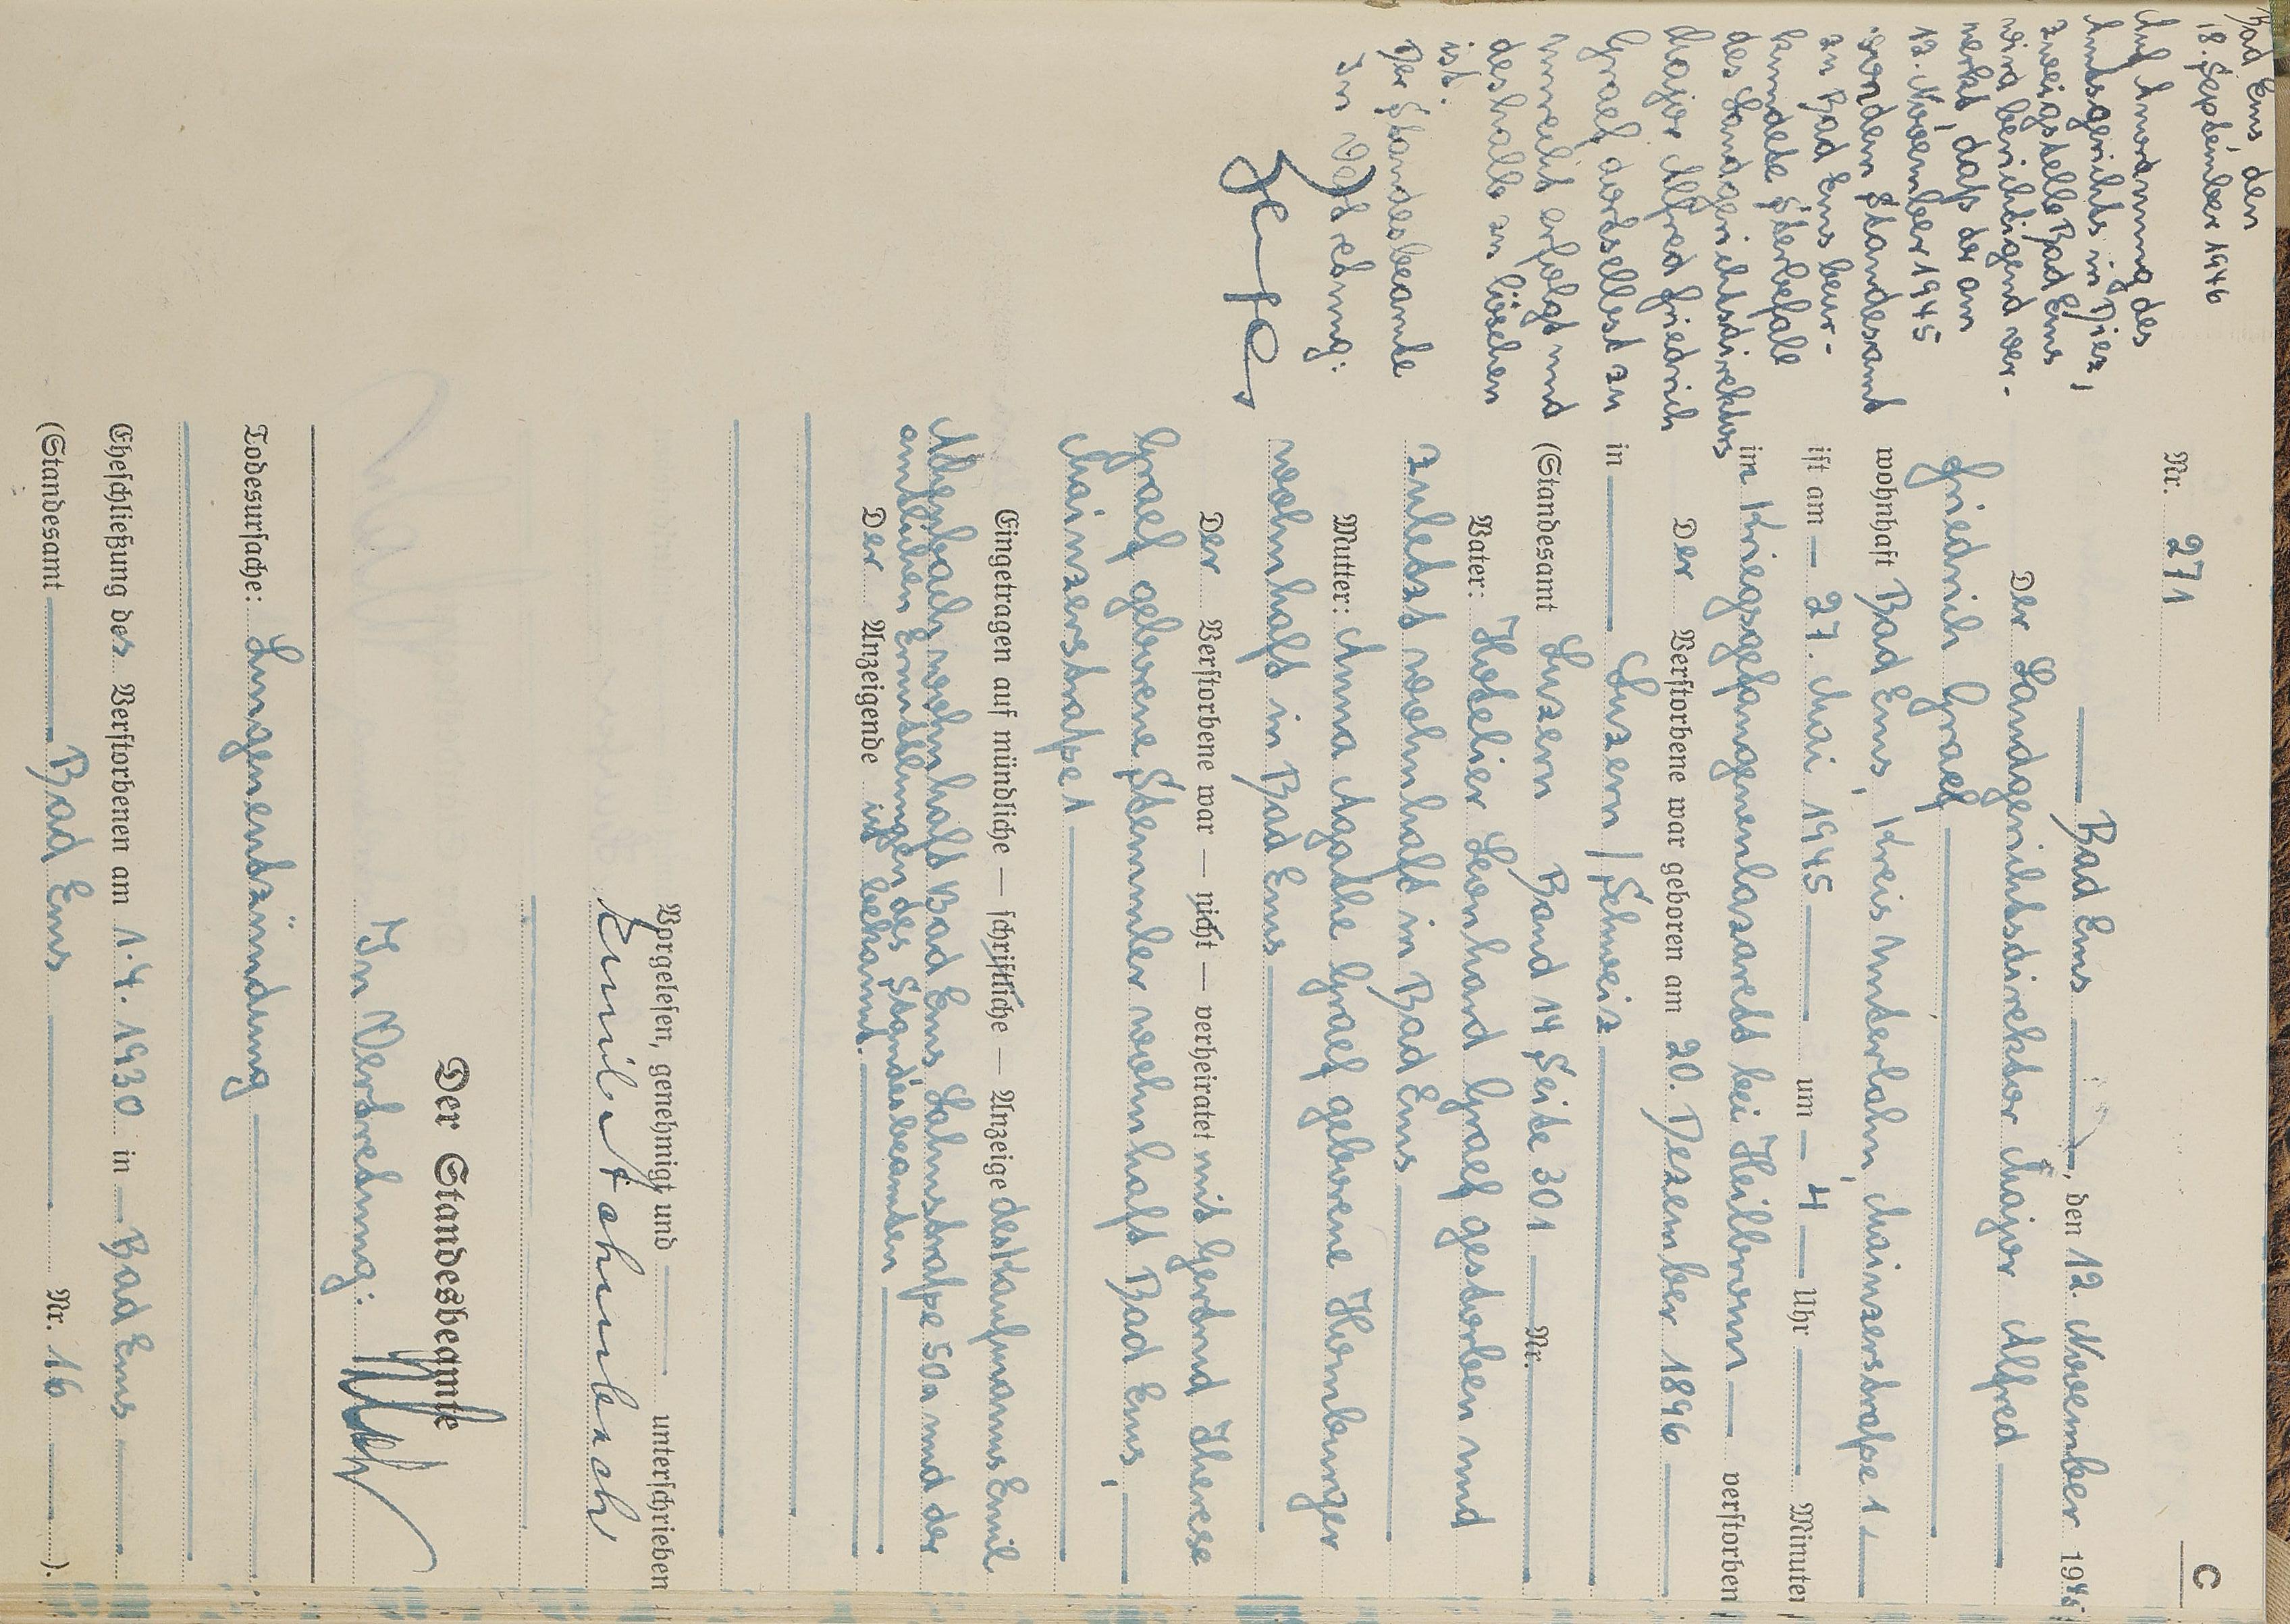 C
Nr. 271
Bad Ems, den 12. November 1945
Der Landgerichtsdirektor Major Alfred
Friedrich Graef
wohnhaft Bad Ems, Kreis Unterlahn, Mainzerstraße 1
ist am 27. Mai 1945 um 4 Uhr Minuten
im Kriegsgefangenenlazarett bei Heilbronn verstorben
Der Verstorbene war geboren am 20. Dezember 1896
in Luzern / Schweiz
(Standesamt Luzern Band 14 Seite 301 Nr.
Vater: Hotelier Leonhard Graef gestorben und
zuletzt wohnhaft in Bad Ems
Mutter: Anna Agathe Graef geborene Hornberger
wohnhaft in Bad Ems
Der Verstorbene war — nicht — verheiratet mit Gertrud Therese
Graef geborene Stemmler wohnhaft Bad Ems,
Mainzerstraße 1
Eingetragen auf mündliche — schriftliche — Anzeige des Kaufmanns Emil
wohnhaft Bad Ems Lahnstraße 50a und der
amtlichen Ermittlungen des Standesbeamten
Der Anzeigende ist bekannt.
Vorgelesen, genehmigt und unterschrieben
Emil
Der Standesbeamte
In Vertretung:
Todesursache: Lungenentzündung
Eheschließung des Verstorbenen am 1.4.1930 in Bad Ems
(Standesamt Bad Ems Nr. 16 ).
Bad Ems, den
18. September 1946
Auf Anordnung des
Amtsgerichts in Diez,
Zweigstelle Bad Ems
wird berichtigend ver-
merkt, daß der am
12. November 1945
von dem Standesamt
zu Bad Ems beur-
kundete Sterbefall
des Landgerichtsdirektors
Major Alfred Friedrich
Graef dortselbst zu
unrecht erfolgt und
deshalb zu löschen
ist.
Der Standesbeamte
In Vertretung: